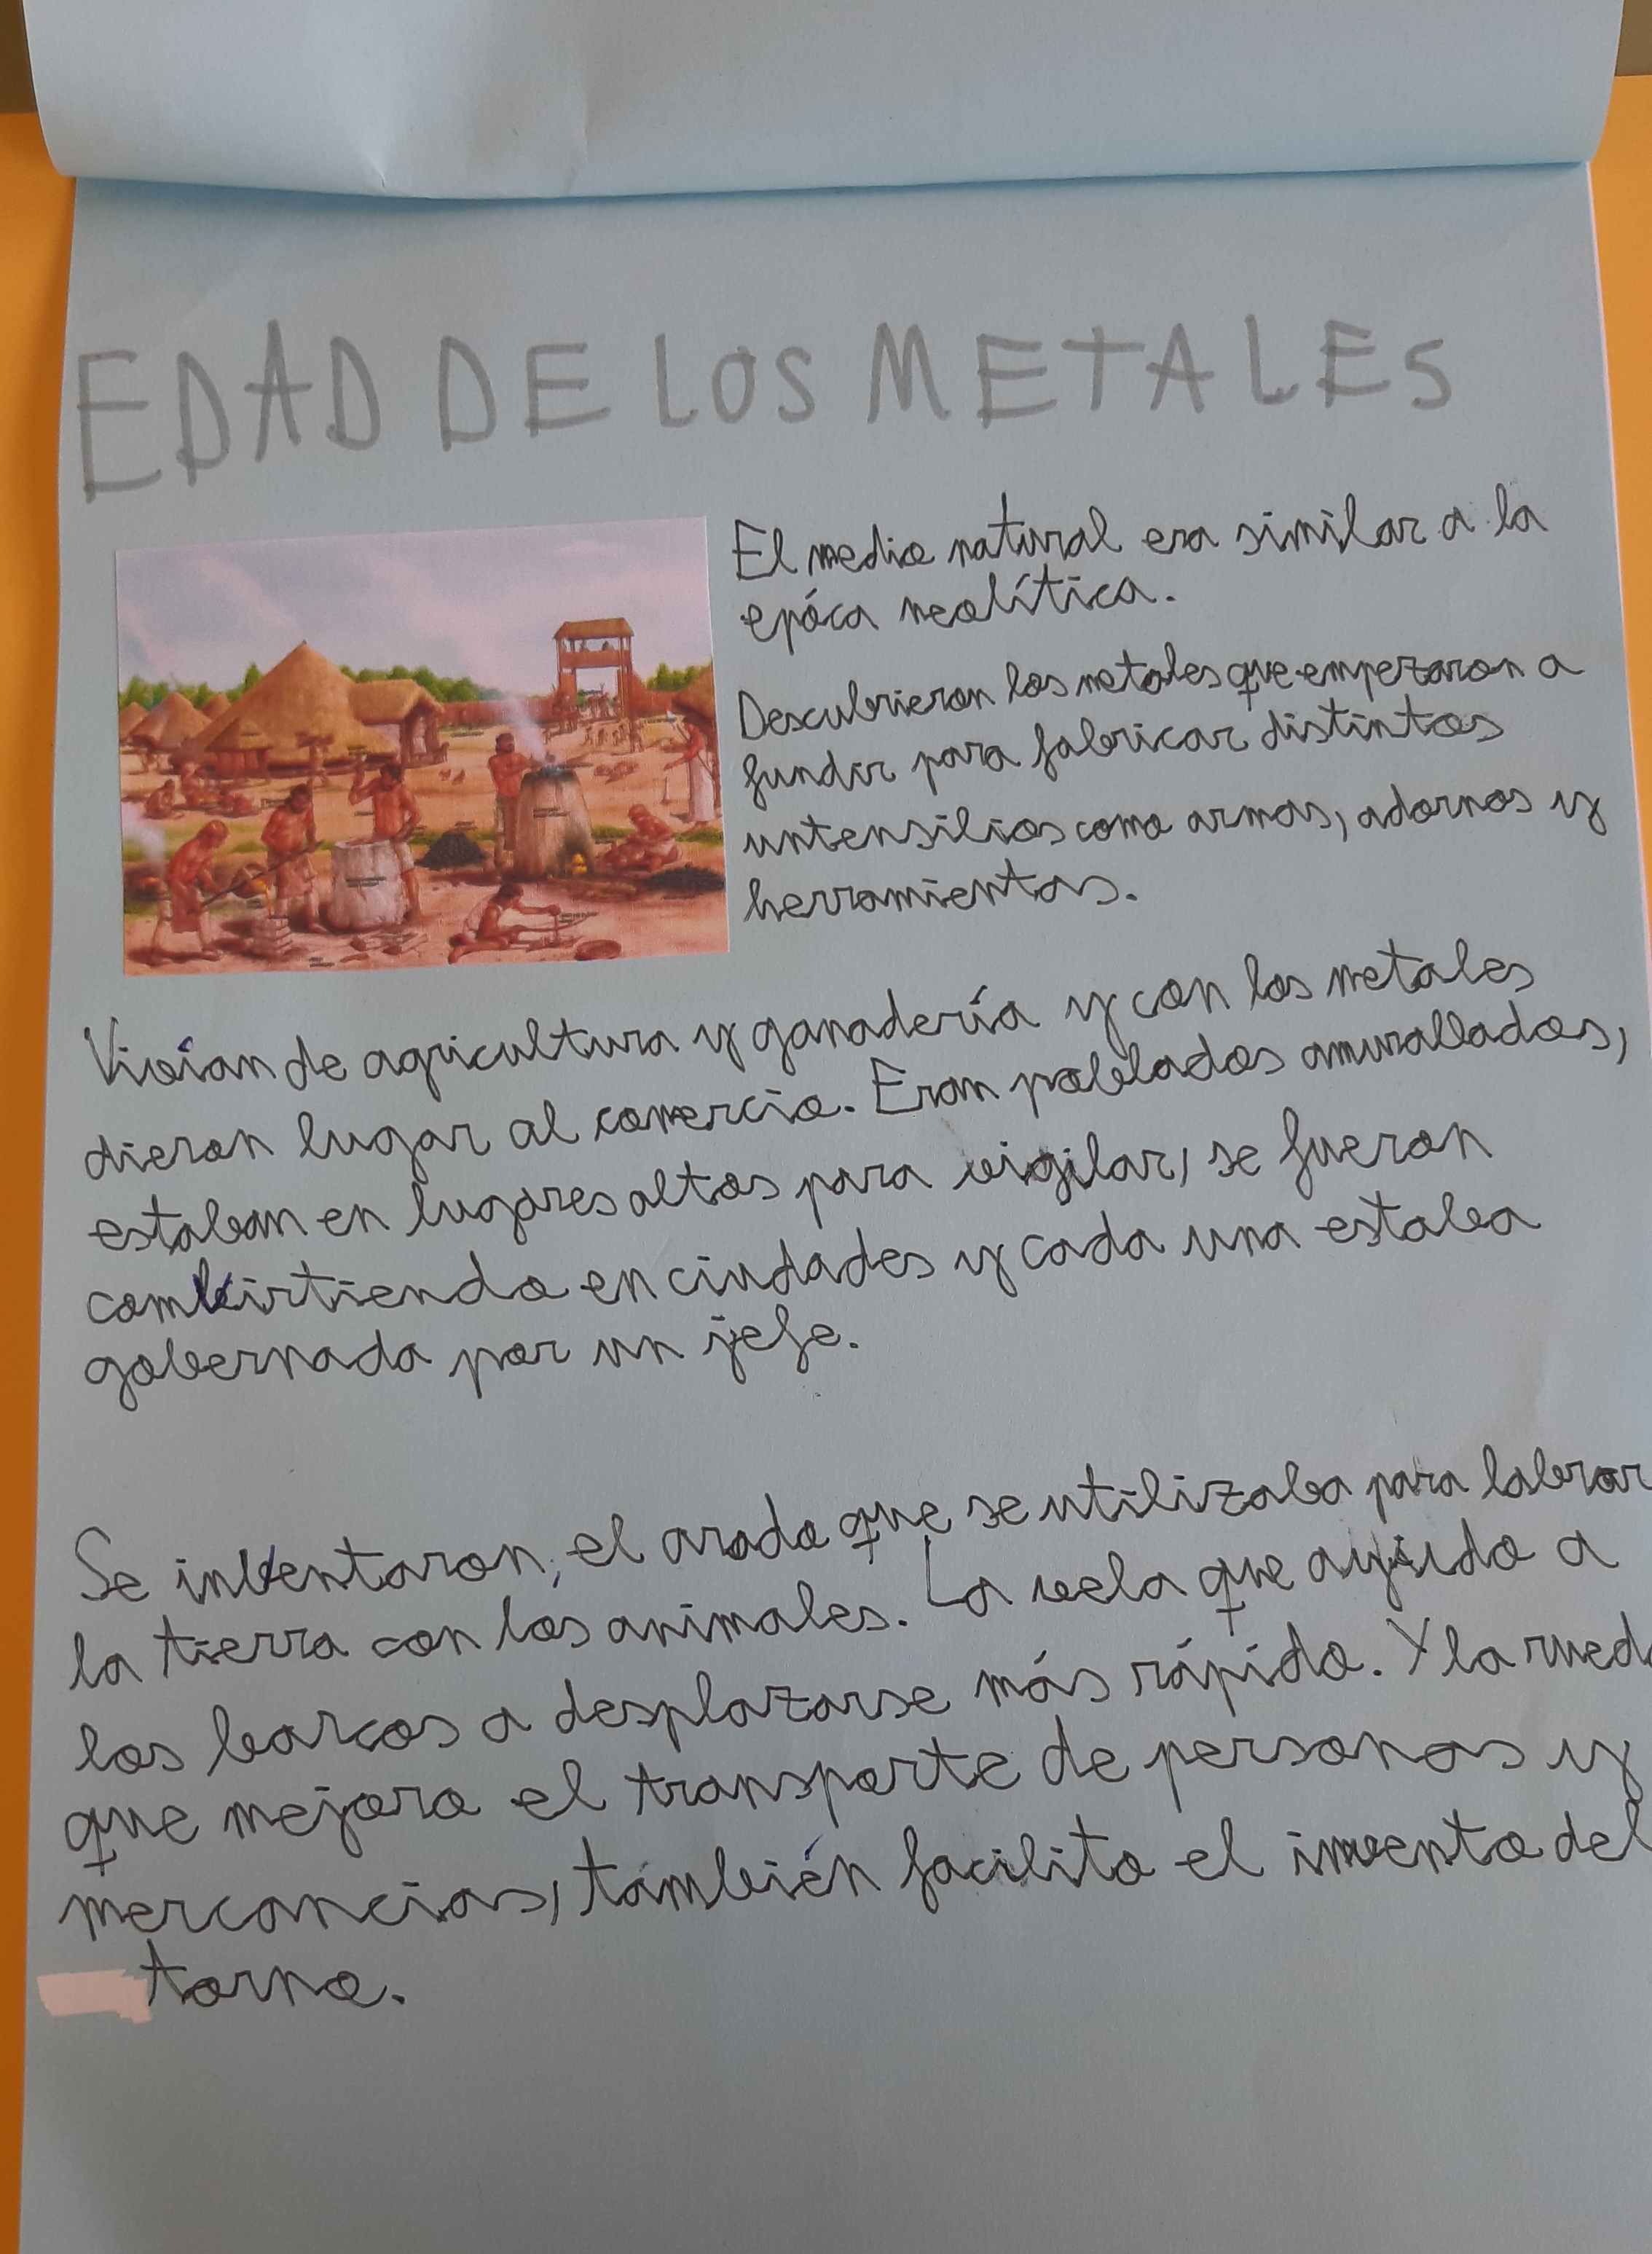 EDAD DE LOS METALES
El medio natural era similar a la
epóca neolítica.
Descubrieron los metales que empezaron a
fundir para fabricar distintos
untensilios como armas, adornos y
herramientas.
Vivían de agricultura y ganadería y con los metales
dieron lugar al comercio. Eran poblados amurallados,
estaban en lugares altos para vigilar, se fueron
comvirtiendo en ciudades y cada una estaba
gobernada por un jefe.
Se inventaron, el arado que se utilizaba para labrar
la tierra con los animales. La vela que ayudo a
los barcos a desplazarse más rápido. Y la rueda
que mejoro el transporte de personas y
mercancias, también facilito el invento del
torno.